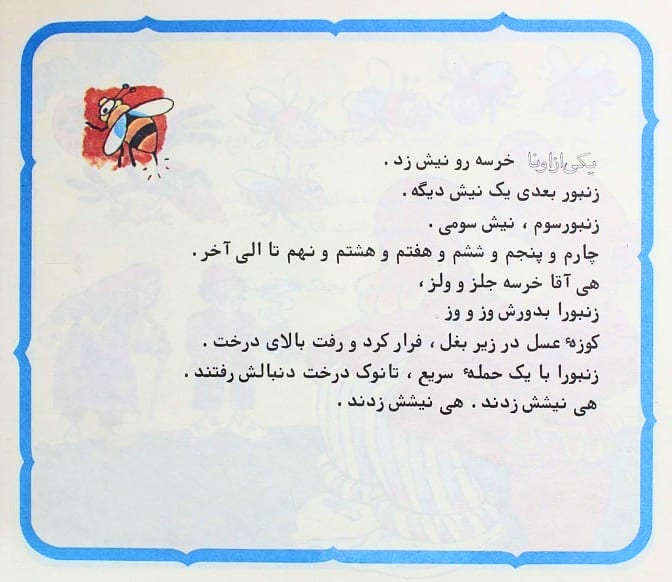 یکی از اونا خرسه رو نیش زد .
زنبور بعدی یک نیش دیگه .
زنبورسوم ، نیش سومی .
چارم و پنجم و ششم و هفتم و هشتم و نهم تا الی آخر .
هی آقا خرسه جلز و ولز،
زنبورا بدورش وز و وز .
کوزهٔ عسل در زیر بغل ، فرار کرد و رفت بالای درخت .
زنبورا با یک حملهٔ سریع ، تانوک درخت دنبالش رفتند .
هی نیشش زدند . هی نیشش زدند .